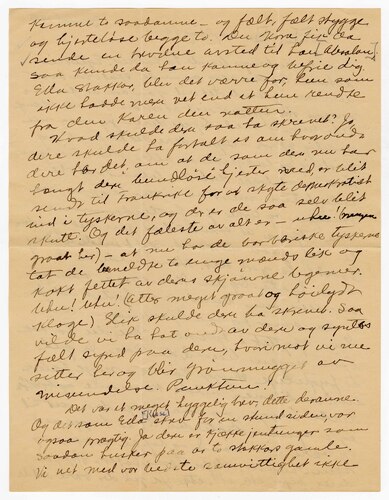 kunne to saadanne – og fælt, fælt stygge
og hjerteløse begge to. Den Nora fik da
sende en brevene avsted til han Absalon,
saa kunde da han komme og befrie dig
Ella stakkar, blev det værre for, hun som
ikke hadde mere vet end at hun sendte
fra den Karen den natten.
Hvad skulde dere saa ha skrevet? Jo
dere skulde ha fortalt at om
dere har det, om at de som dere nu har
hængt dere hendløse hjerter ved, er blit
sendt til Frankrike for at skyte
ind i tyskerne, og der er de saa selv blit
skutt. Og det fæleste av alt er – uhu!
graat her) – at nu har de barbariske tyskerne
tat de unge mænds lik og
kokt fettet av deres skjønne legemer.
Uhu! Uhu! (Atter meget graat og høilydt
klage) Slik skulde dere ha skrevet. Saa
vilde vi ha hat ondt av dere og synes
fælt synd paa dere, hvorimot vi nu
sitter her og blir grønnugget av
misundelse. Punktum!
Det var et meget hyggelig brev dette deranne.
Og det som Ella skrev for en stund siden var
ogsaa prægtig. Ja dere er kjække jentunger som
saadan husker paa os to stakkars gamle.
Vi vet med vor bedste samvittighet ikke